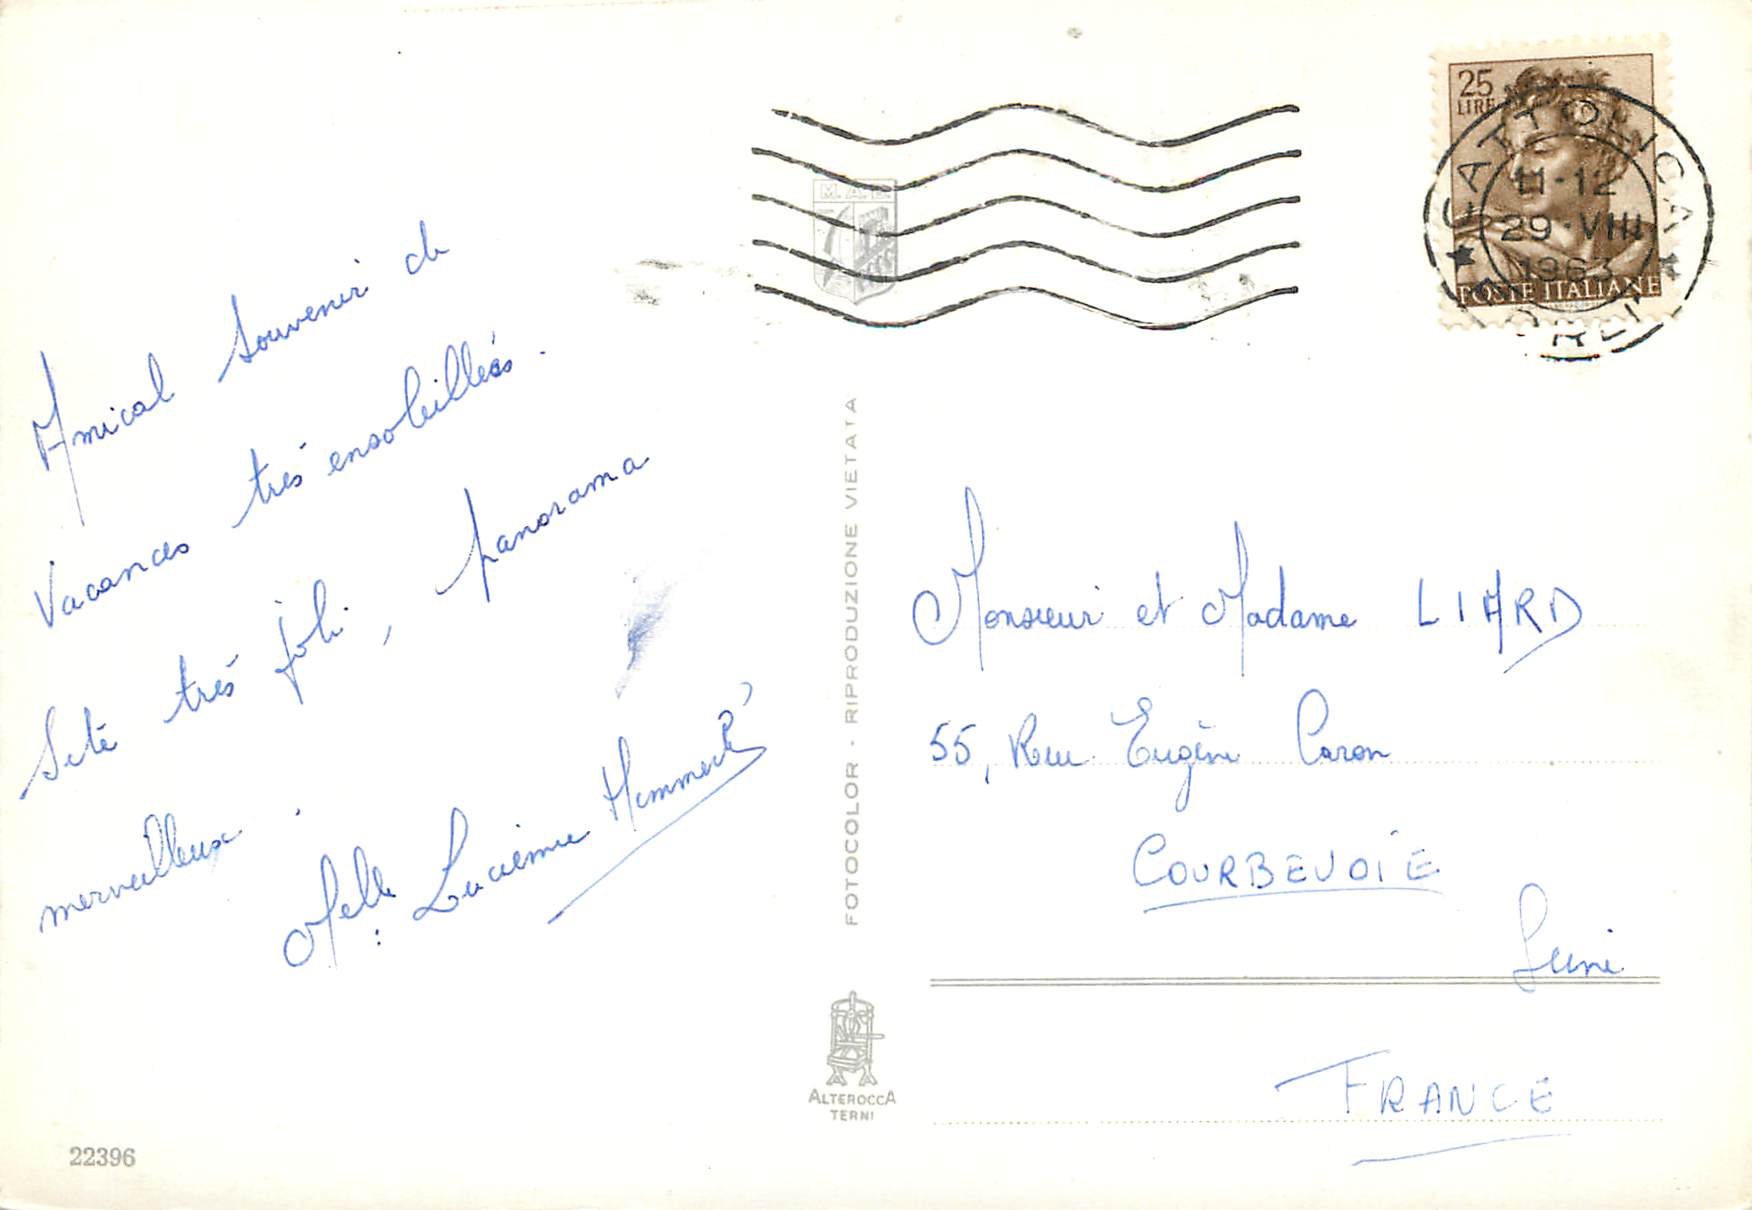 Amical Souvenir de
Vacances très ensoleillées.
Sité très joli, panorama
merveilleux.
Melle Lucienne Hemmerlé
22396
FOTOCOLOR - RIPRODUZIONE VIETATA
ALTEROCCA
TERNI
25
LIRE
POSTE ITALIANE
CATTOLICA
11-12
29·VIII
1963
FORLI
Monsieur et Madame LIARD
55, Rue Eugène Caron
COURBEVOIE
Seine
FRANCE